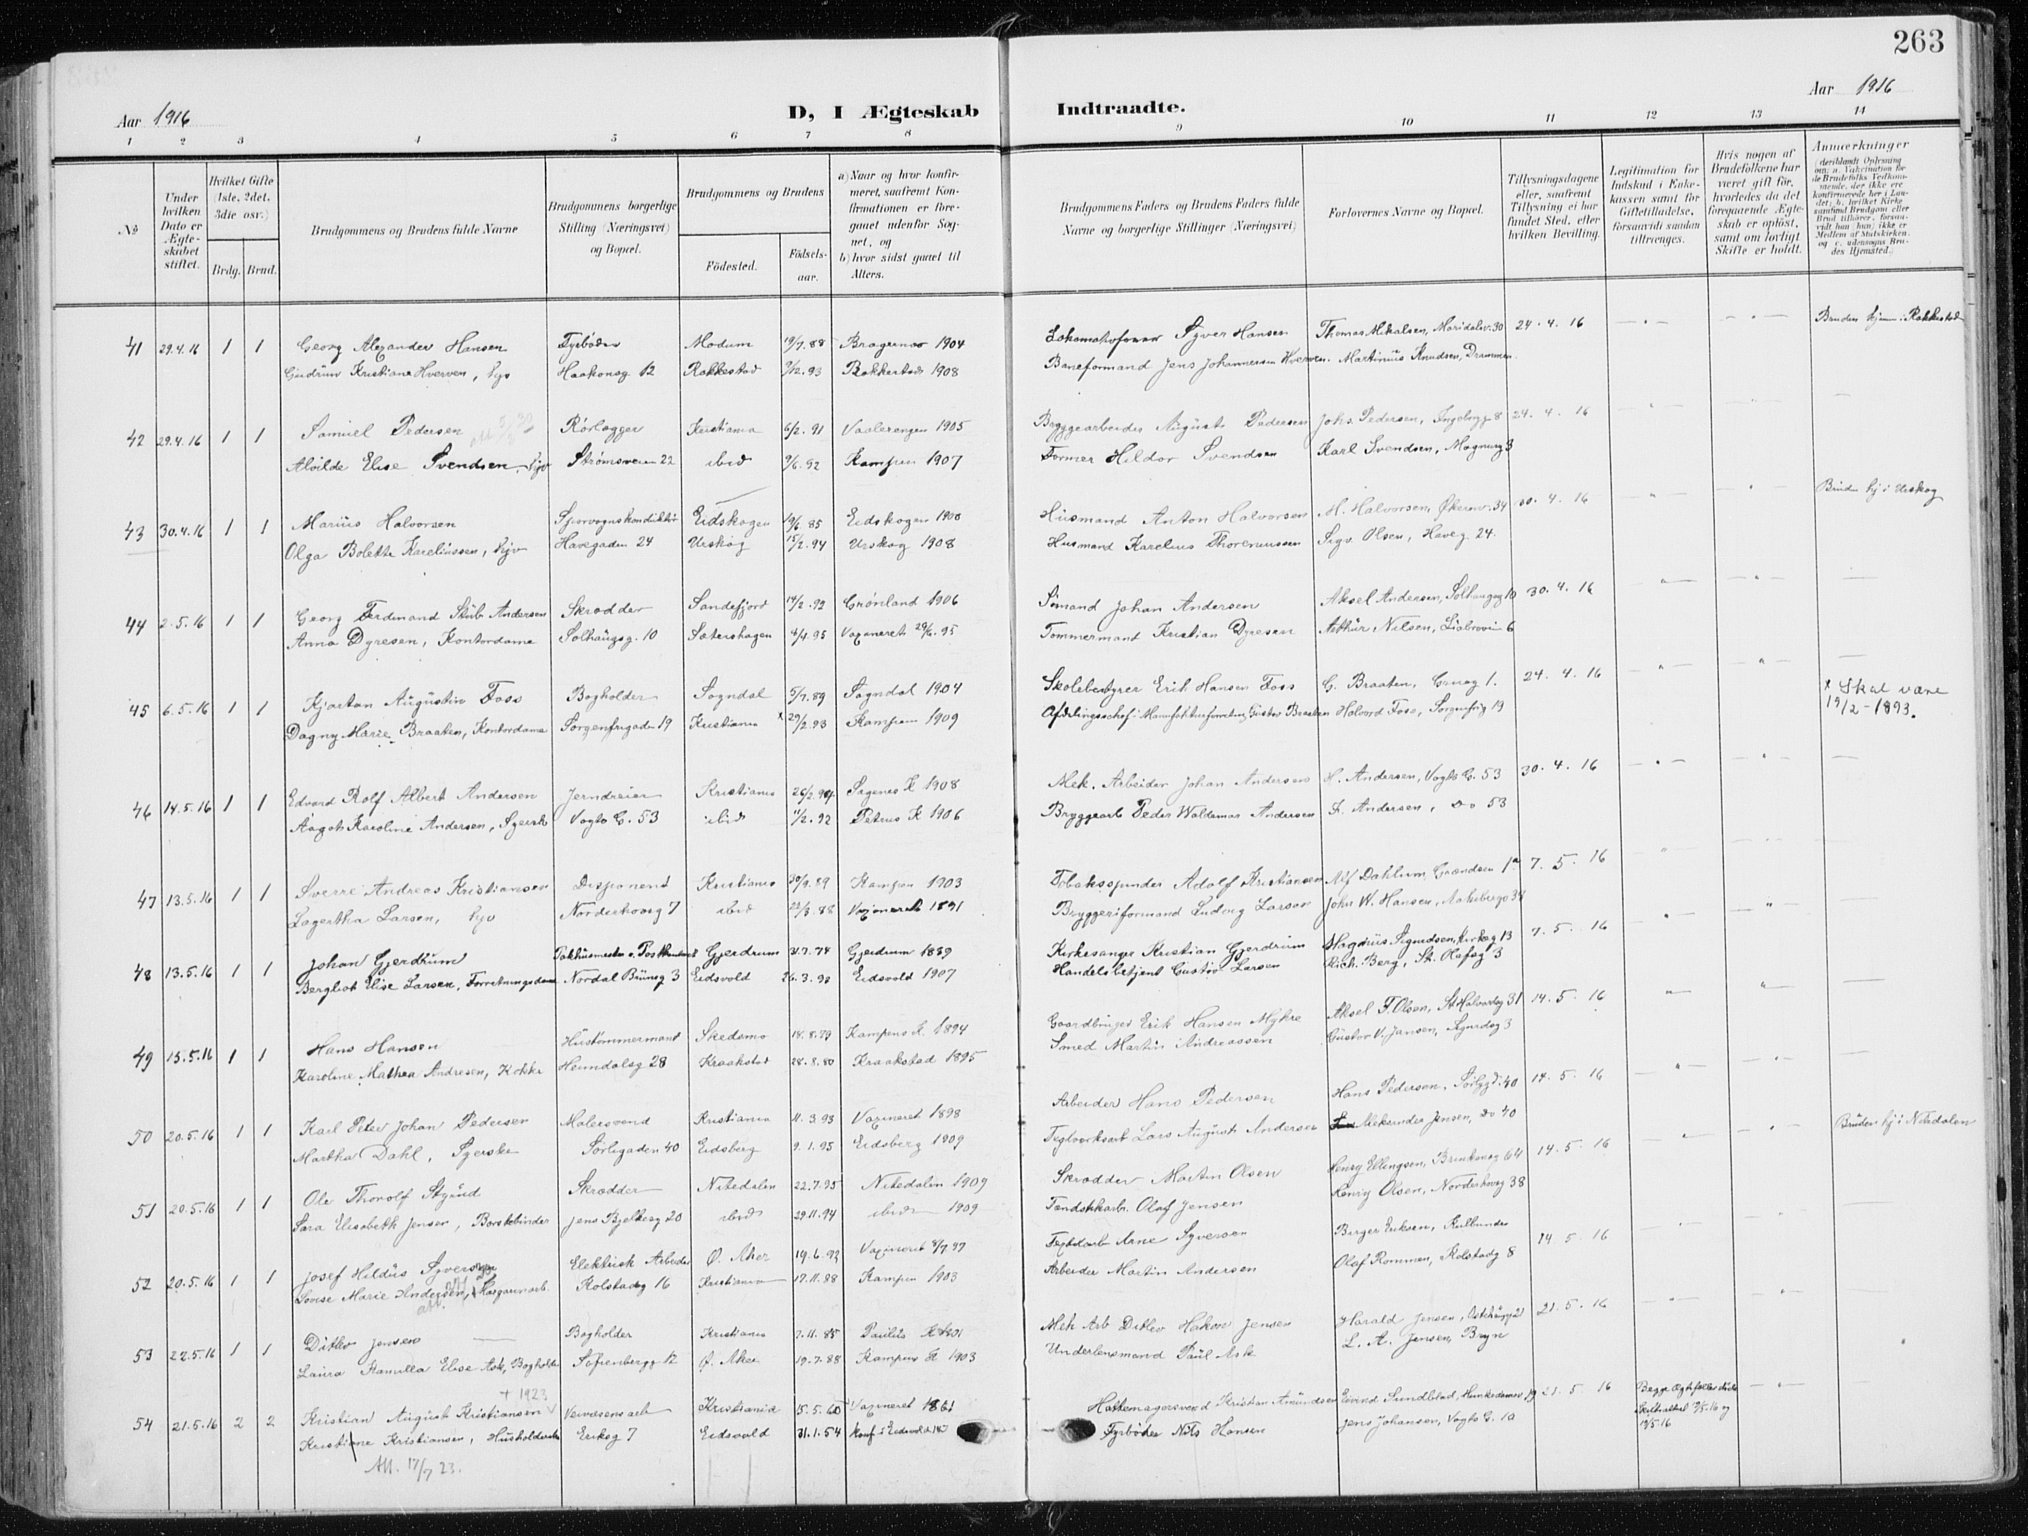 263
Aar 1916
D, I Ægteskab Indtraadte.
Aar 1916
1 2 3 4 5 6 7 8 9 10 11 12 13 14
No
Under hvilken Dato er Ægteskabet stiftet.
Hvilket Gifte (1ste, 2det, 3die osv.)
Brdg. Brud.
Brudgommens og Brudens fulde Navne
Brudgommens borgerlige Stilling (Næringsvei) og Bopæl.
Brudgommens og Brudens
Födested.
Födsels-aar.
a) Naar og hvor konfirmeret, saafremt Konfirmationen er foregaaet udenfor Sognet, og
b) hvor sidst gaaet til Alters.
Brudgommens Faders og Brudens Faders fulde Navne og borgerlige Stillinger (Næringsvei)
Forlovernes Navne og Bopæl.
Tillysningsdagene eller, saafremt Tillysning ei har fundet Sted, efter hvilken Bevilling.
Legitimation for Indskud i Enkekassen samt for Giftetilladelse, forsaavidt saadan tiltrænges.
Hvis nogen af Brudefolkene har været gift för, hvorledes da det foregaaende Ægteskab er oplöst, samt om lovligt Skifte er holdt.
Anmerkninger
41 29.4.16 1 1 Georg Alexander Hansen Fyrbøder Modum 19/7.88 Bragernes 1904 Lokomotivfører Syver Hansen Thomas Mikalsen, Maridalsv. 30 24.4.16 Bruden hjem. i Rakkestad
Gudrun Kristiane Hverven, hjv Haakonsg. 12 Rakkestad 2/12.93 Rakkestad 1908 Baneformand Jens Johannesen Hverven. Martinius Knudsen, Drammen.
42 29.4.16 1 1 Samuel Pedersen Rørlægger Kristiania 6/2.91 Vaalerengen 1905 Bryggearbeider August Pedersen Johs. Pedersen, Ingeborgg 8 24.4.16
Alvilde Elise Svendsen, hjv Strømsveien 22 ibid 9/6.92 Kampen 1907 Former Hildor Svendsen Karl Svendsen, Magnusg 3
43 30.4.16 1 1 Marius Halvorsen Sporvognskonduktør Eidskogen 19/6.85 Eidskogen 1900 Husmand Anton Halvorsen H. Halvorsen, Økernv. 34 30.4.16 Bruden hj i Urskog
Olga Bolette Kareliussen, hjv Havegaden 24 Urskog 15/2.94 Urskog 1908 Husmand Karelius Thoreniussen Sigv. Olsen, Haveg. 24.
44 2.5.16 1 1 Georg Ferdinand Skib Andersen Skrædder Sandefjord 14/2.92 Grønland 1906 Sømand Johan Andersen Aksel Andersen, Solhaugsg 10 30.4.16
Anna Dyresen, Kontordame Solhaugsg. 10 Sætershagen 4/4.95 Vaxineret 29/6.95 Tømmermand Kristian Dyresen Arthur Nilsen, Liabrovn 6
45 6.5.16 1 1 Kjartan Augustin Foss Bogholder Sogndal 5/7.89 Sogndal 1904 Skolebestyrer Erik Hansen Foss G. Braaten, 1. 24.4.16 x Skal være 19/2-1893.
Dagny Marie Braaten, Kontordame Sorgenfrigaden 19 Kristiania x 29/2.93 Kampen 1909 Gustav Braaten Halvord Foss, Sorgenfrig 13
46 14.5.16 1 1 Edvard Rolf Albert Andersen Jerndreier Kristiania 26/2.94 Sagenes K 1908 Mek. Arbeider Johan Andersen H. Andersen, Vogts G. 53 30.4.16
Aagot Karoline Andersen, Syerske Vogts G. 53 ibid 11/2.92 Petrus K 1906 Bryggearb Peder Waldemar Andersen F. Andersen, do 53
47 13.5.16 1 1 Sverre Andreas Kristiansen Disponent Kristiania 30/9.89 Kampen 1903 Tobaksspinder Adolf Kristiansen Alf Dahlum, Grændsen 1a 7.5.16
Lagertha Larsen, hjv Norderhovsg 7 ibid 23/3.88 Vaxineret 1891 Bryggeriformand Ludvig Larsen John W. Hansen, 34
48 13.5.16 1 1 Johan Gjerdrum Pakhusmester v. Gjerdrum 31.7.74 Gjerdrum 1889 Kirkesanger Kristian Gjerdrum Magnus Sigurdsen, Kirkeg 13 7.5.16
Bergliot Elise Larsen, Forretningsdame Nordal Brunsg 3 Eidsvold 26.3.92 Eidsvold 1907 Handelsbetjent Gustav Larsen Rich. Berg, St. Olafsg 3
49 15.5.16 1 1 Hans Hansen Hustømmermand Skedsmo 18.8.79 Kampens K. 1894 Gaardbruger Erik Hansen Myhre Aksel F. Olsen, St Halvardsg 31 14.5.16
Karoline Mathea Andresen, Kokke Heimdalsg 28 Kraakstad 28.8.80 Kraakstad 1895 Smed Martin Andreassen Gustav V. Jansen, Sigurdsg 3
50 20.5.16 1 1 Karl Peter Johan Pedersen Malersvend Kristiania 11.3.93 Vaxineret 1898 Arbeider Hans Pedersen Hans Pedersen, Sørligd. 40 14.5.16
Martha Dahl, Syerske Sørligaden 40 Eidsberg 9.1.95 Eidsberg 1909 Teglverksarb Lars August Andersen Aleksander Jensen, do 40 Bruden hj i Nitedalen
51 20.5.16 1 1 Ole Thorolf Stgund Skrædder Nitedalen 22.7.95 Nitedalen 1909 Skrædder Martin Olsen Henry Ellingsen, Brinkensg 64 14.5.16
Sara Elisabeth Jensen, Børstebinder Jens Bjelkesg 20 ibid 29.11.94 ibid 1909 Tændstikarb. Olaf Jensen Henry Olsen, Norderhovsg 38
52 20.5.16 1 1 Josef Hildus Syversen Elektrisk Arbeider Ø. Aker 19.6.92 Vaxineret 8/7 97 Teglarb Arne Syversen Birger Eriksen, Kulbunden 14.5.16
Lovise Marie Andersen, Margarinarb. Rolstadsg 16 Kristiania 17.11.88 Kampen 1903 Arbeider Martin Andersen Olaf Rommen, Rolstadg 8
53 27.5.16 1 1 Ditlev Jensen Bogholder Kristiania 7.11.85 Paulus K Mek Arb Ditlev Hakon Jensen Harald Jensen, 21.5.16
Laura Kamilla Elise Ask, Bogholder Sofienbergg 12 Ø. Aker 19.7.88 Kampens K 1903 Underlensmand Paul Ask L. A. Jensen, Bryn
+ 1923
54 21.5.16 2 2 Kristian August Kristiansen Veivæsensarb Kristiania 15.5.60 Vaxineret 1861 Hattemagersvend Kristian Amundsen Eivind Sundblad, Munkedamsv 19 21.5.16
Kristiane Kristiansen, Husholderske Eriksg 7 Eidsvold 31.1.54 Konf i Eidsvold Fyrbøder Nils Hansen Jens Johansen, Vogts G. 10
Att. 17/7 23.